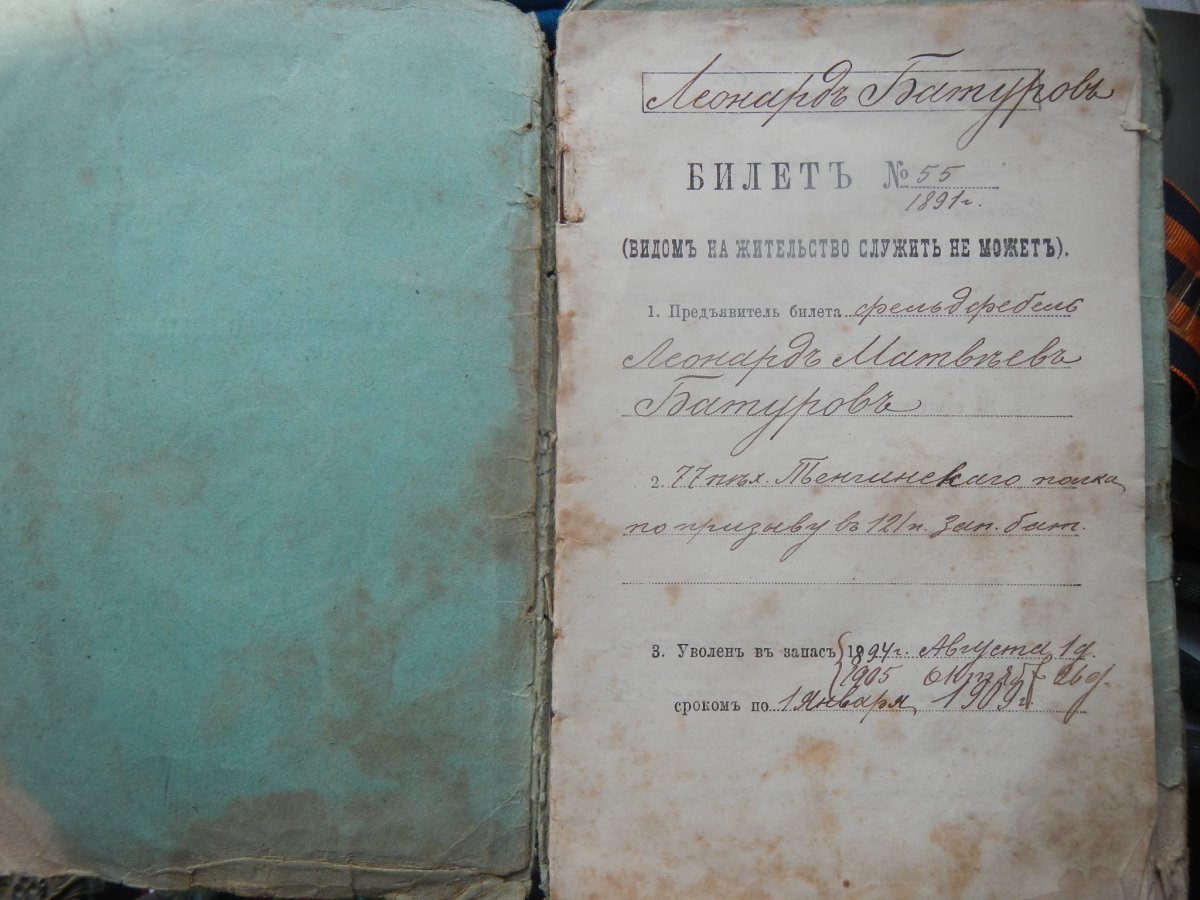 Леонардъ Батуровъ
БИЛЕТЪ № 55
1891 г.
(ВИДОМЪ НА ЖИТЕЛЬСТВО СЛУЖИТЬ НЕ МОЖЕТЪ).
1. Предъявитель билета фельдфебель
Леонардъ Матвѣевъ
Батуровъ
2. 77 пѣх. Тенгинскаго полка,
по призыву въ 121 п. зап. бат.
3. Уволенъ въ запасъ 1894 г. Августа 1 д.
1905 Октяб 26 д.
срокомъ по 1 Января, 1909 г.